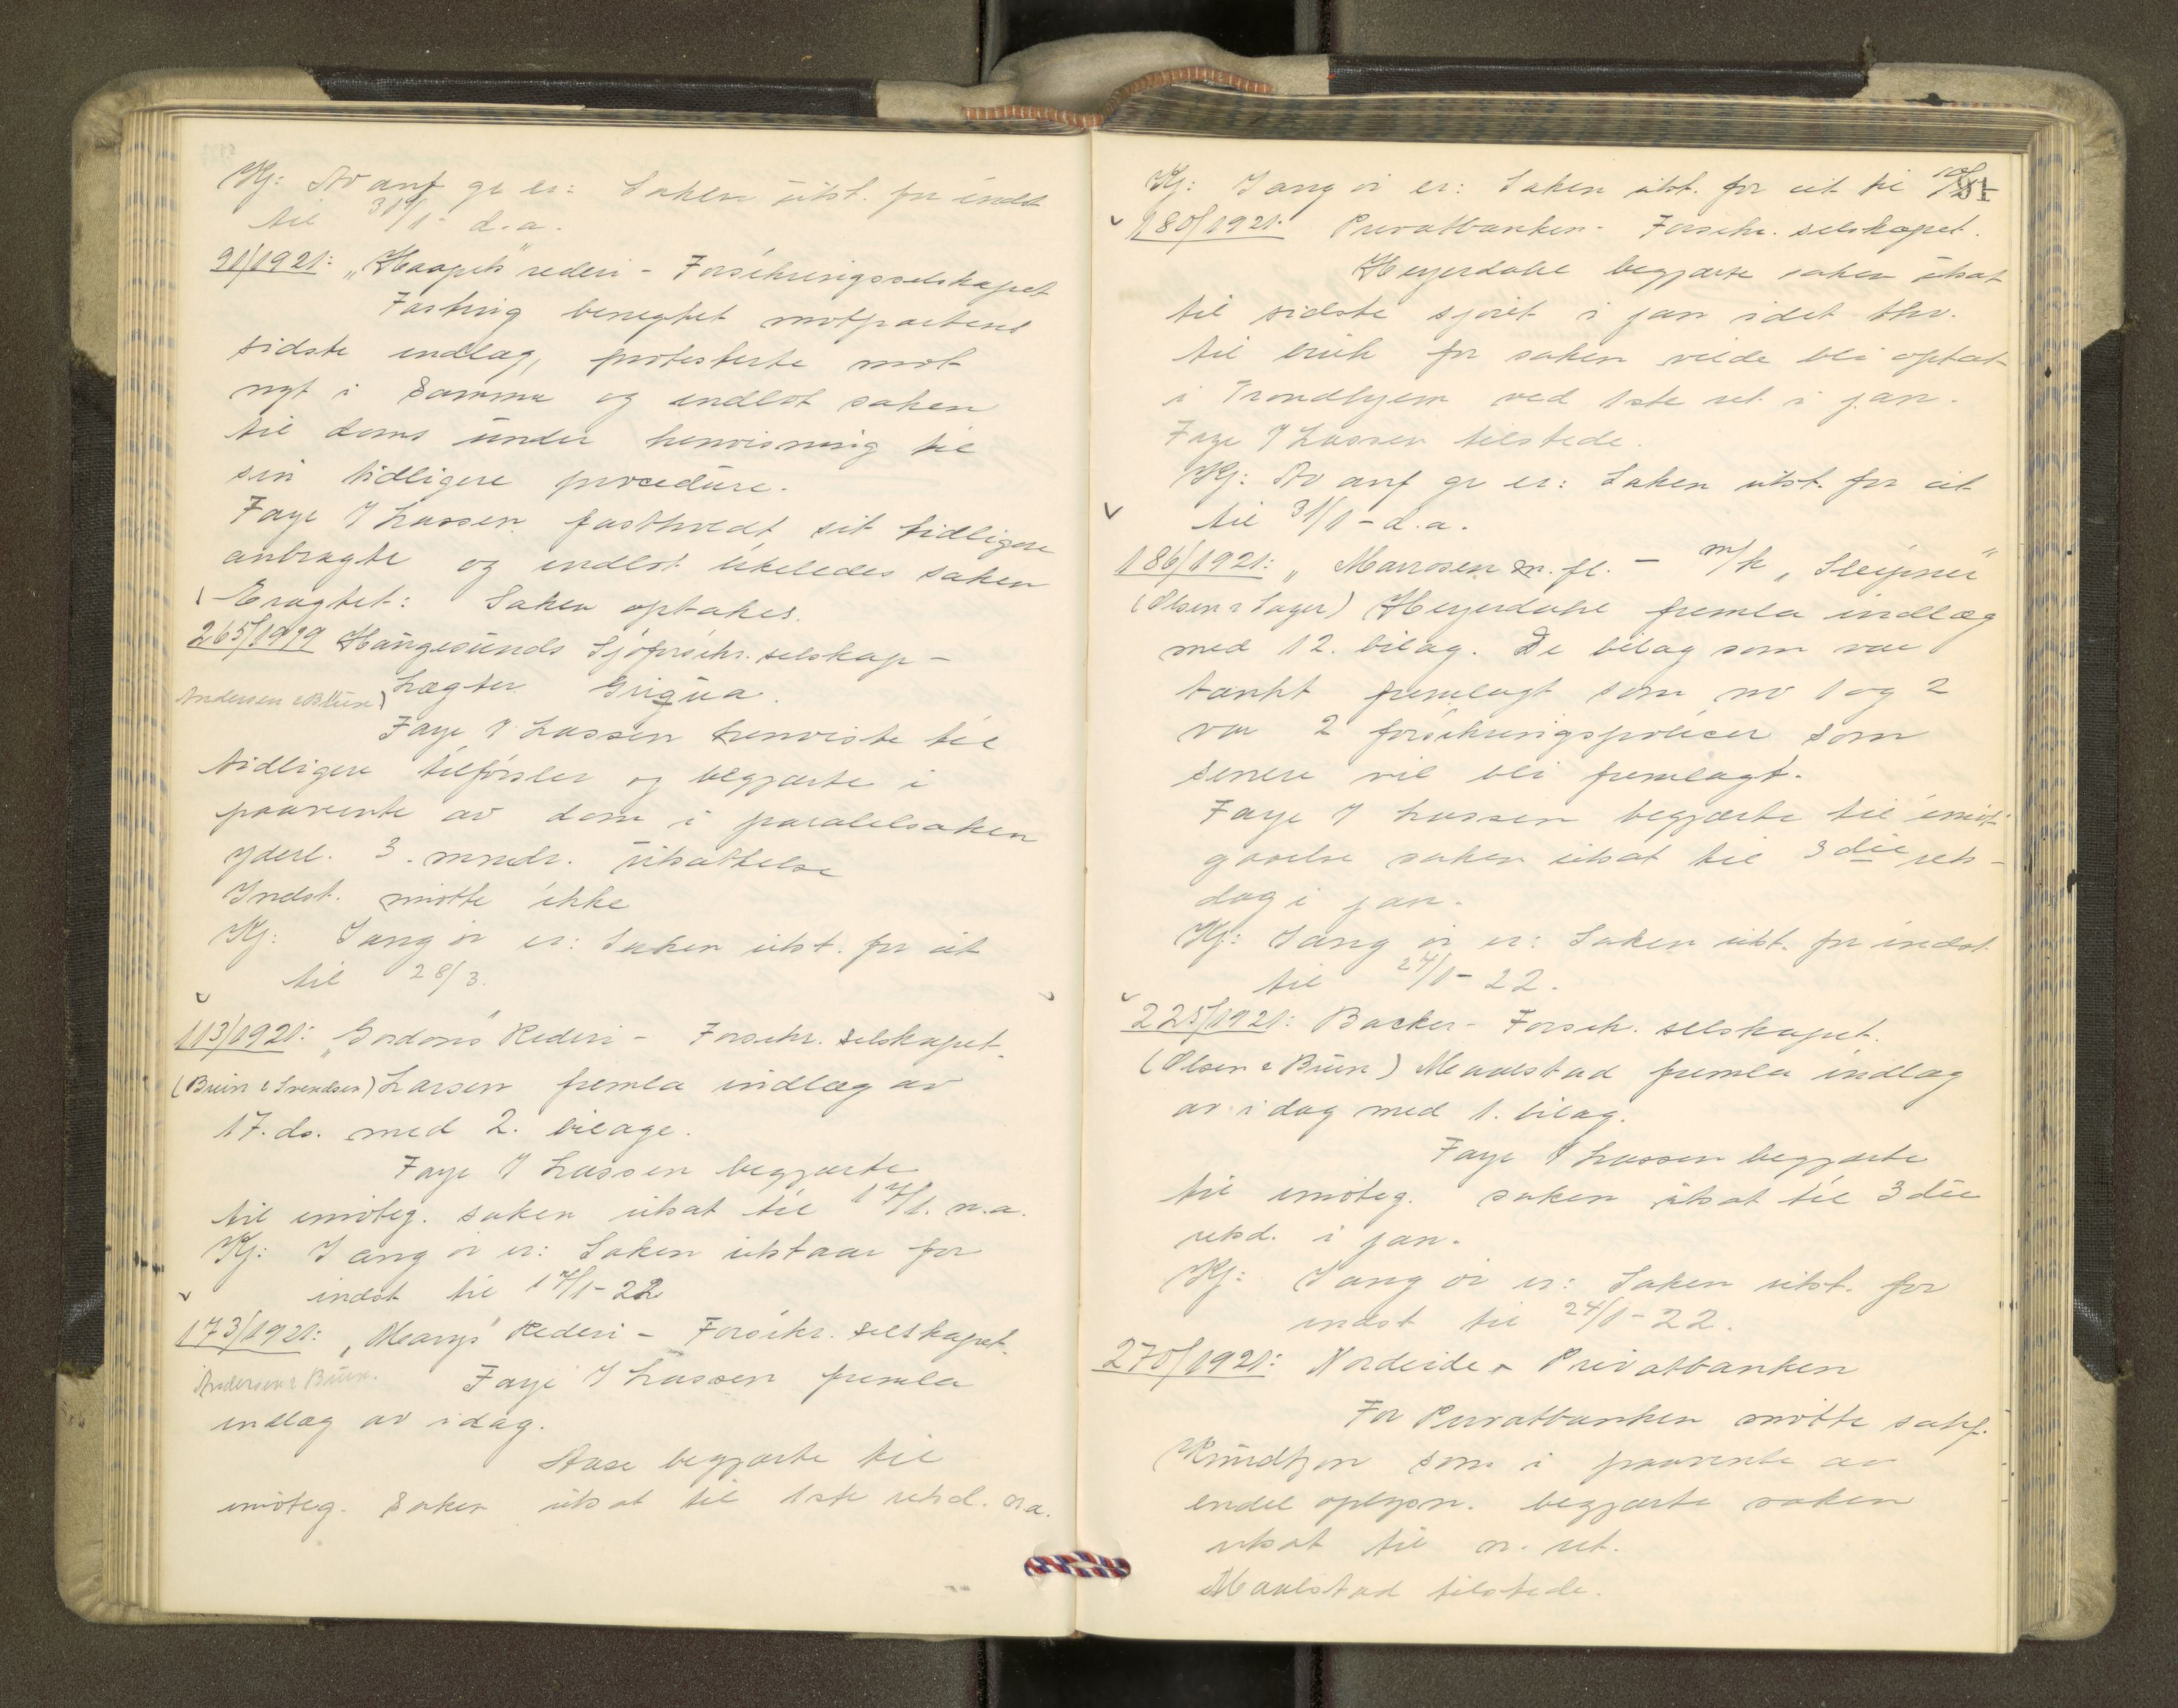 Kj: Av anf gr er: Saken utst. for indst
til 31/1 - d.a.
91/1921: „Haapets" rederi - Forsikringsselskapet
Fasting benegtet motpartens
sidste indlag, protesterte mot
nyt i samme og indlot saken
til doms under henvisning til
sin tidligere procedure.
Faye J Lassen fastholdt sit tidligere
anbragte og indlot likeledes saken
Eragtet: Saken optakes.
265/1919 Haugesunds Sjøforsikr. selskap -
Andersen & Bruun) Lægter Griqua.
Faye J Lassen henviste til
tidligere tilførsler og begjærte i
paavente av dom i paralelsaken
yderl. 3. mndr. utsættelse
Indst. møtte ikke
Kj: I ang ør er: Saken utst. for cit
til 28/3.
113/1921: „Gordons" Rederi - Forsikr. selskapet.
(Bruun & Svendsen) Larsen fremla indlæg av
17. ds. med 2. bilage.
Faye J Lassen begjærte
til imøteg. saken utsat til 17/1. n.a.
Kj: I ang ør er: Saken utstaar for
indst til 17/1 - 22
173/1921: „Marys" Rederi - Forsikr. selskapet.
Andersen & Bruun. Faye J Lassen fremla
indlæg av idag.
Aase begjærte til
imøteg. saken utsat til 1ste retsd. n.a.
Kj: I ang ør er: Saken utst. for cit til 10/1
91
180/1921: Privatbanken - Forsikr. selskapet.
Heyerdahl begjærte saken utsat
til sidste sjøret i jan idet thv.
til bruk for saken vilde bli optat
i Trondhjem ved 1ste ret i jan.
Faye J Lassen tilstede.
Kj: Av anf gr er: Saken utst. for cit
til 31/1 - d.a.
186/1921: „Marosen m. fl. - m/k „Sleipner"
(Olsen & Sager) Heyerdahl fremla indlæg
med 12. bilag. De bilag som var
tænkt fremlagt som no 1 og 2
var 2 forsikringspolicer som
senere vil bli fremlagt.
Faye J Lassen begjærte til imøt
gaaelse saken utsat til 3die rets-
dag i jan.
Kj: I ang ør er: Saken utst. for indst.
til 24/1 - 22.
225/1921: Backer - Forsik. selskapet.
(Olsen & Bruun) Maulstad fremla indlæg
av idag med 1. bilag.
Faye J Lassen begjærte
til imøteg. saken utsat til 3die
retsd. i jan.
Kj: I ang ør er: Saken utst. for
indst til 24/1 - 22.
270/1921: Nordeide - Privatbanken
For Privatbanken møtte sakf.
Knudtzon som i paavente av
endel oplysn. begjærte saken
utsat til n. ret.
Maulstad tilstede.